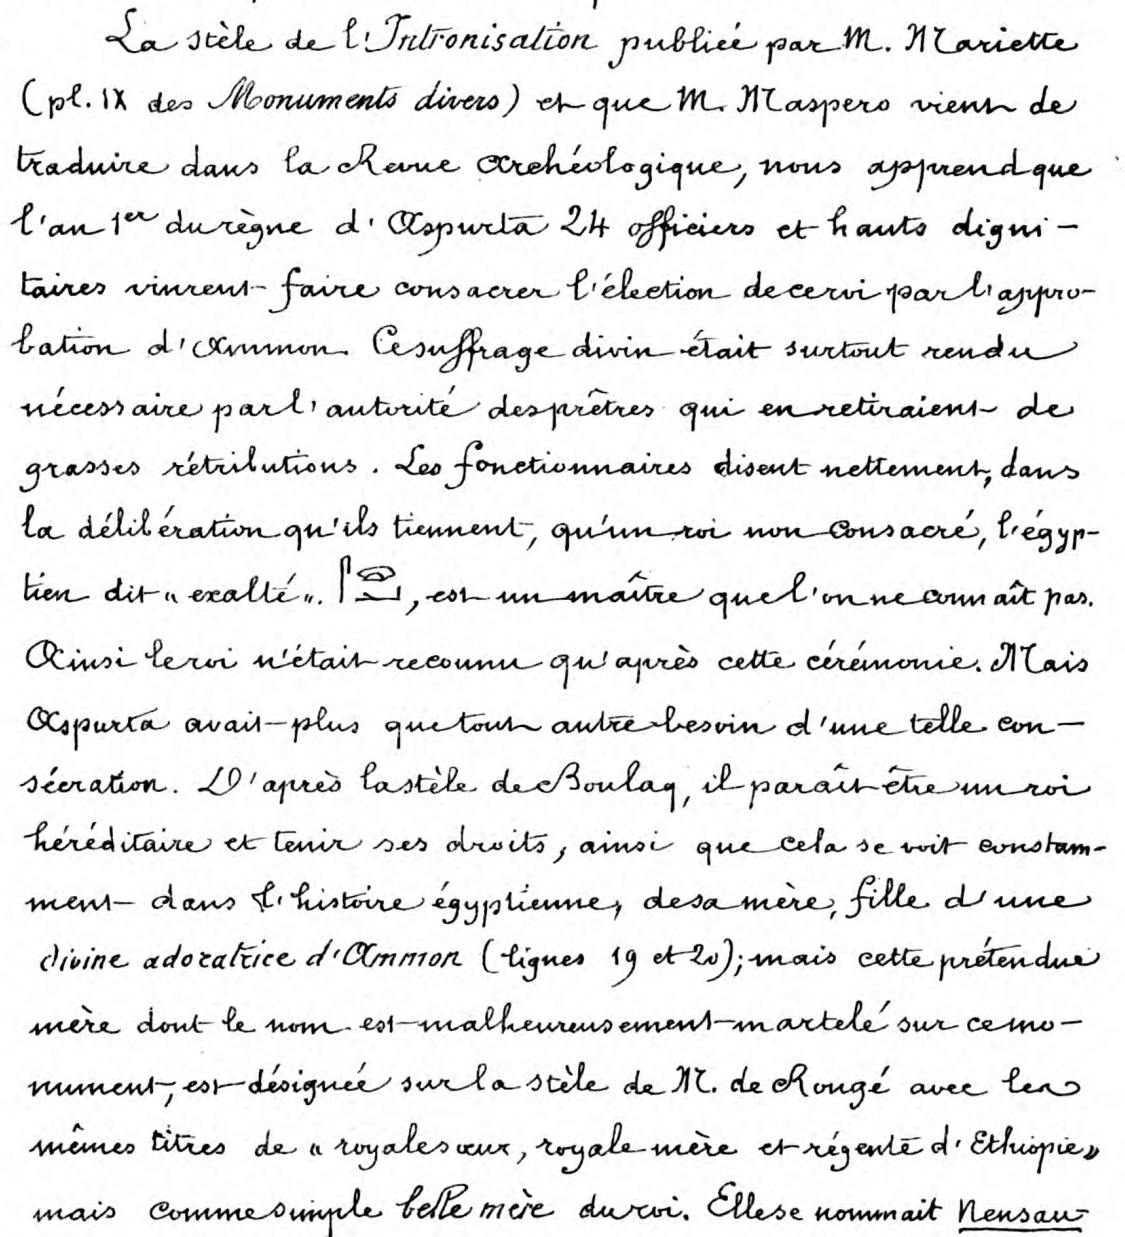 La stèle de l'Intronisation publiée par M. Mariette
(pl. IX des Monuments divers) et que M. Maspero vient de
traduire dans la Revue Archéologique, nous apprend que
l'an 1er du règne d'Aspurta 24 officiers et hauts digni-
taires vinrent faire consacrer l'élection de ce roi par l'appro-
bation d'Ammon. Ce suffrage divin était surtout rendu
nécessaire par l'autorité des prêtres qui en retiraient de
grasses rétributions. Les fonctionnaires disent nettement, dans
la délibération qu'ils tiennent, qu'un roi non consacré, l'égyp-
tien dit « exalté ». , est un maître que l'on ne connaît pas.
Ainsi le roi n'était reconnu qu'après cette cérémonie. Mais
Aspurta avait plus que tout autre besoin d'une telle con-
sécration. D'après la stèle de Boulaq, il paraît être un roi
héréditaire et tenir ses droits, ainsi que cela se voit constam-
ment dans l'histoire égyptienne, de sa mère, fille d'une
divine adoratrice d'Ammon (lignes 19 et 20); mais cette prétendue
mère dont le nom est malheureusement martelé sur ce mo-
nument, est désignée sur la stèle de M. de Rougé avec les
mêmes titres de « royale sœur, royale mère et régente d'Ethiopie »
mais comme simple belle mère du roi. Elle se nommait Nensau-